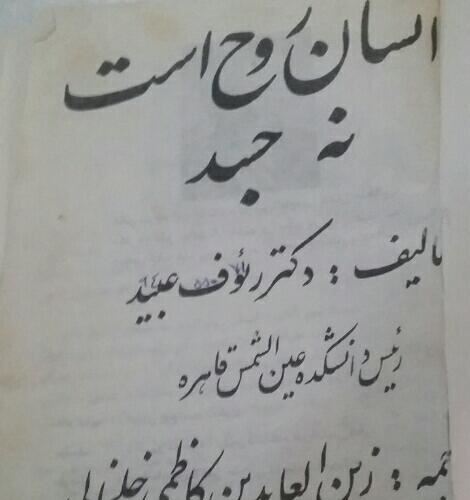 انسان روح است
نه جسد
تالیف : دکتر رئوف عبید
رئیس دانشکده عین الشمس قاهره
ترجمه : زین العابدین کاظمی خلخالی